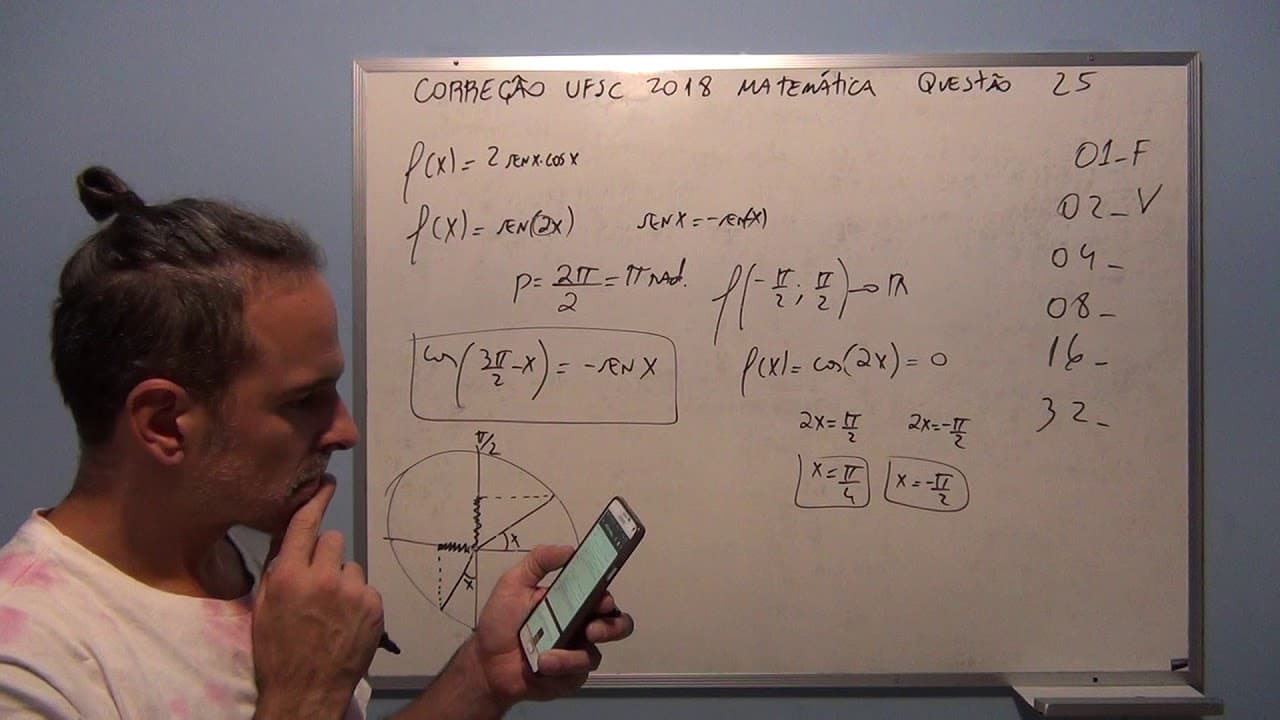 CORREÇÃO UFSC 2018 MATEMÁTICA QUESTÃO 25
f(x) = 2 senx.cosx
f(x) = sen(2x)
senx = -sen(x)
P = 2π/2 = π rad.
cos(3π/2 - x) = -senx
π/2
x
x
f(-π/2; π/2) → R
f(x) = cos(2x) = 0
2x = π/2 2x = -π/2
x = π/4 x = -π/2
01_F
02_V
04_
08_
16_
32_